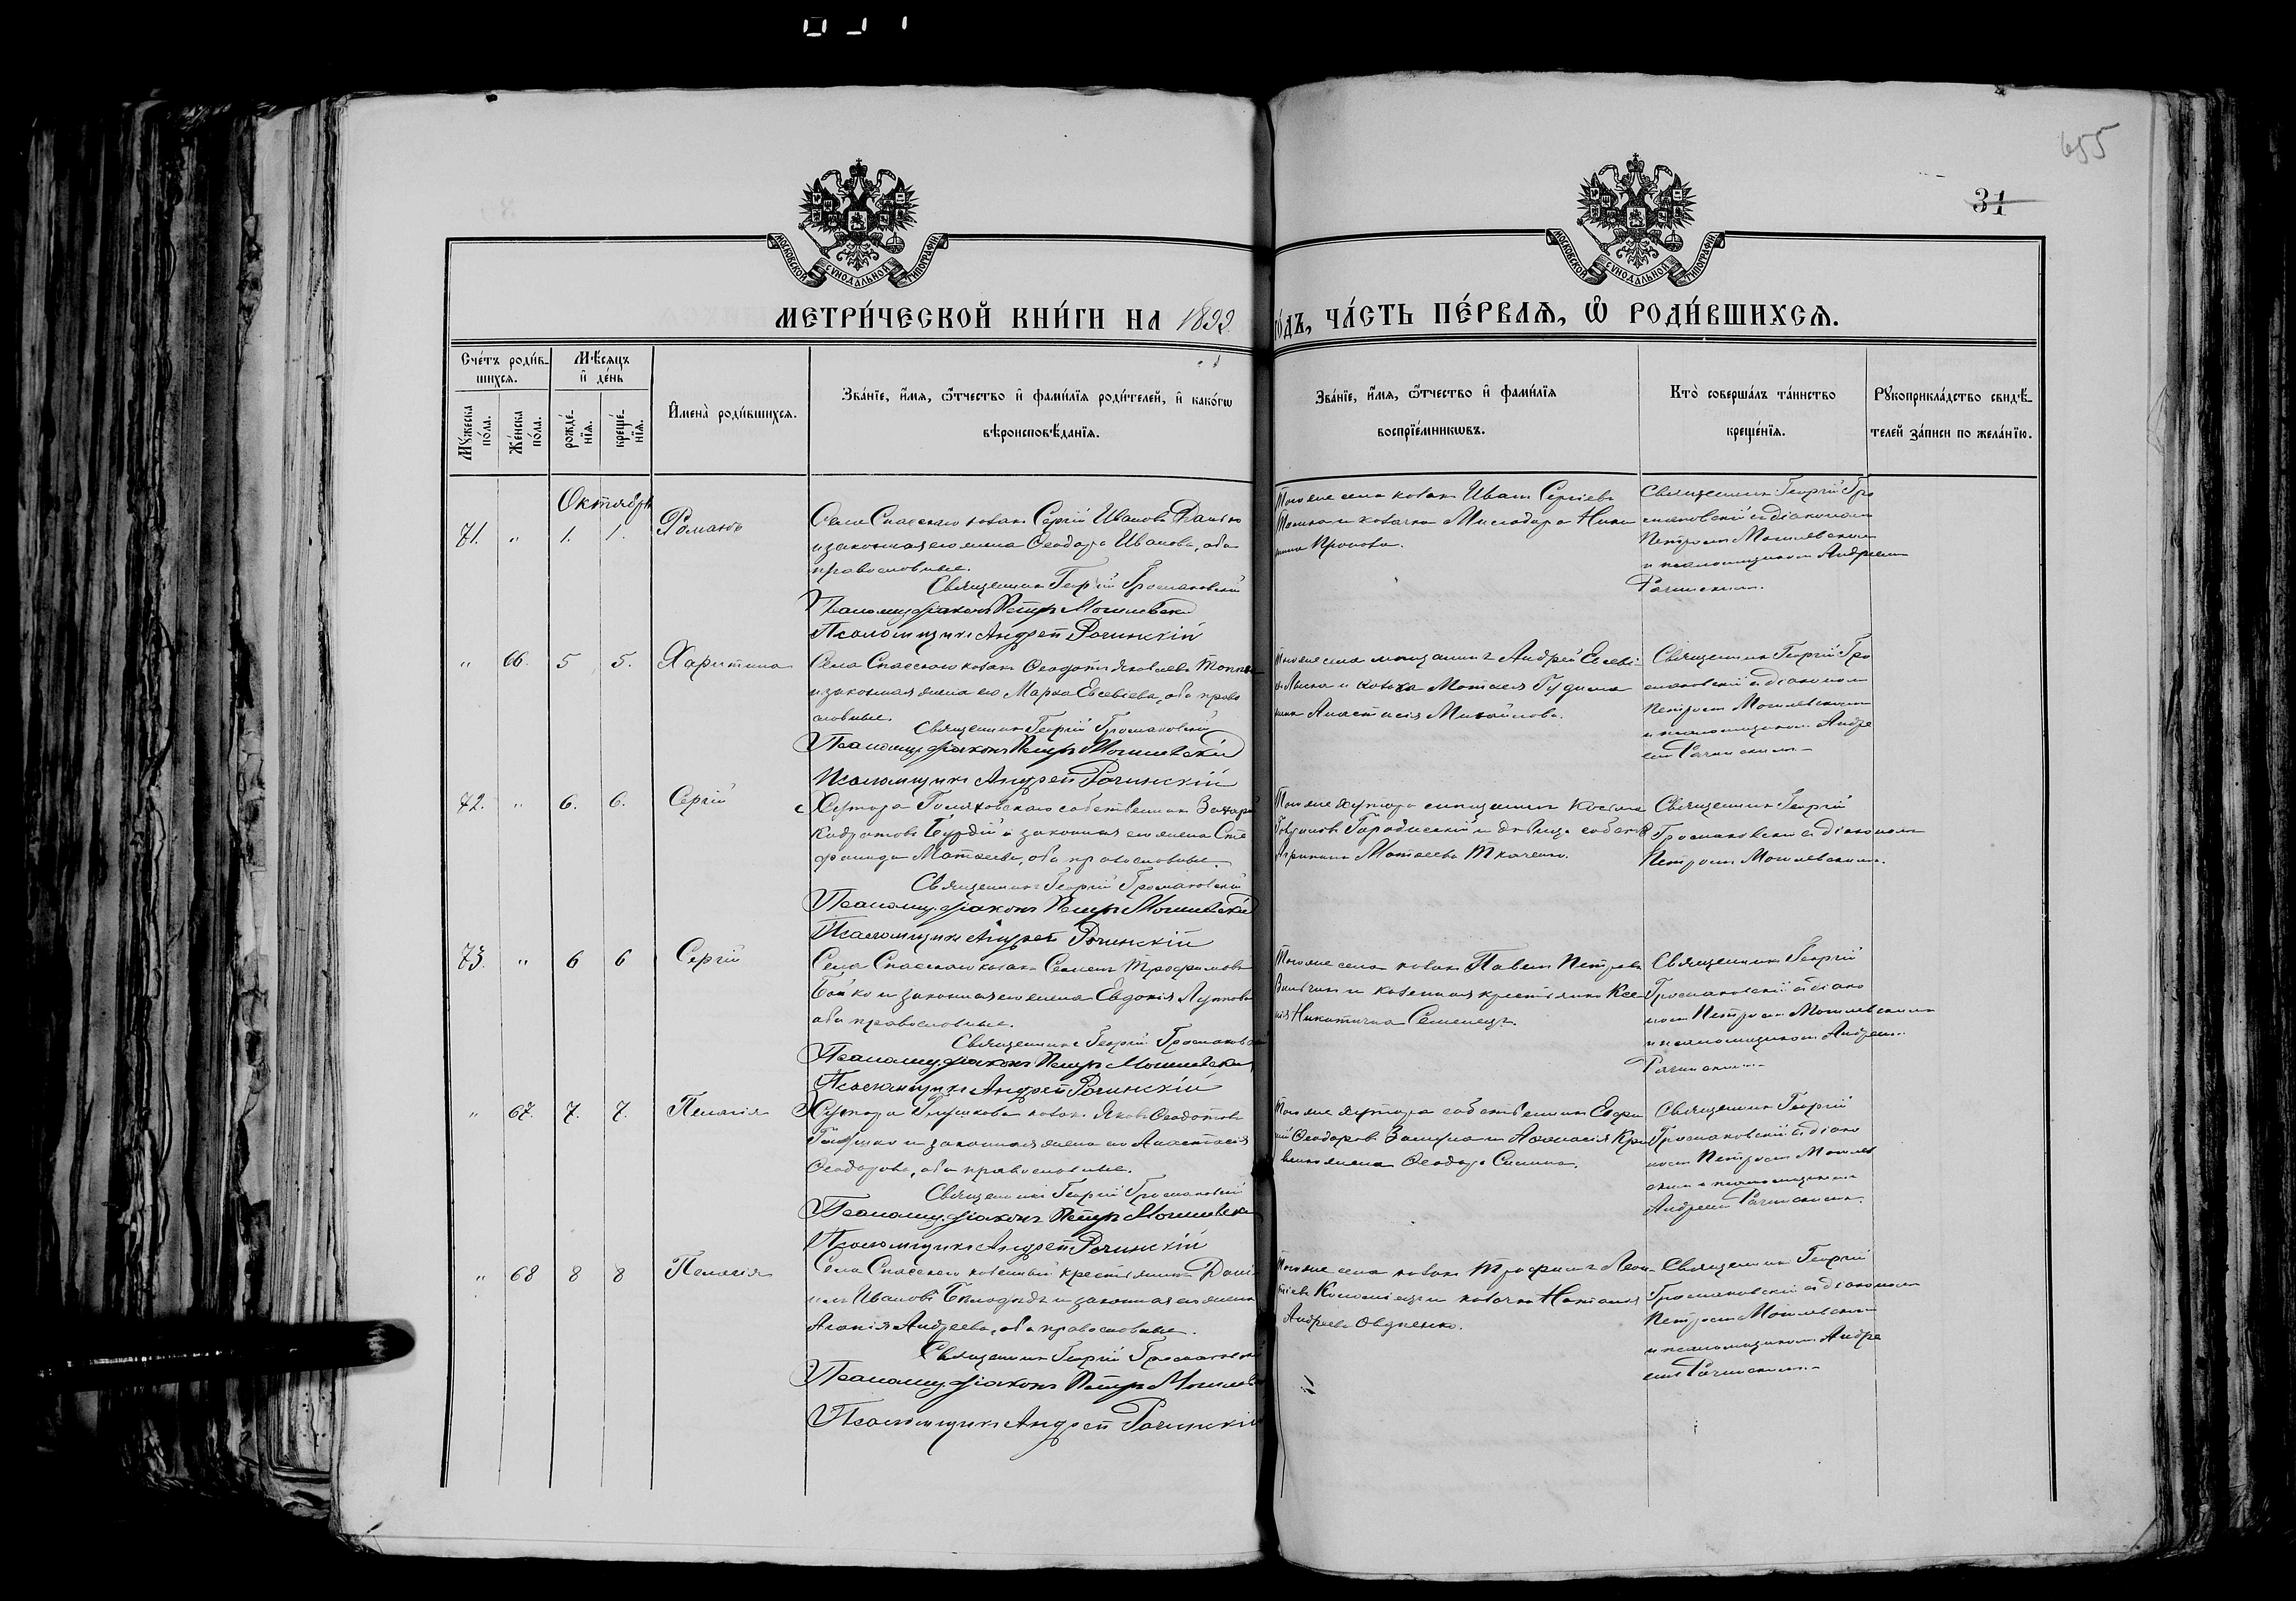 655
31
МОСКОВСКОЙ СУНОДАЛЬНОЙ ТИПОГРАФІИ
МОСКОВСКОЙ СУНОДАЛЬНОЙ ТИПОГРАФІИ
МЕТРИ́ЧЕСКОЙ КНИ́ГИ НА 1899
ГО́ДЪ, ЧА́СТЬ ПЕ́РВАѦ, Ѡ РОДИ́ВШИХСѦ.
Сче́тъ роди́в-
шихся.
Мѣ́сяцъ
и҆ де́нь
Мꙋ́жеска по́ла.
Же́нска по́ла.
рожде́-нїѧ.
креще́-нїѧ.
И҆мена̀ роди́вшихсѧ.
Зва́нїе, и҆́мѧ, ѻ҆́тчество и҆ фами́лїѧ роди́телей, и҆ како́гѡ
вѣроисповѣ́данїѧ.
Зва́нїе, и҆́мѧ, ѻ҆́тчество и҆ фами́лїѧ
воспрїе́мникѡвъ.
Кто̀ соверша́лъ та́инство
креще́нїѧ.
Рꙋкоприкла́дство свидѣ́-
телей за́писи по жела́нїю.
Октябрь
71. " 1. 1. Романъ
Села Спасскаго козакъ Сергій Ивановъ
и законная его жена Ѳеодора Иванова, оба
православные.
Священникъ Георгій Громаковскій
Псаломщ. діаконъ Петръ Могилевскій
Псаломщикъ Андрей Рачинскій
Того же села козакъ Иванъ Сергіевъ
Священникъ Георгій Гро
маковскій съ діакономъ
Петромъ Могилевскимъ
и псаломщикомъ Андреемъ
Рачинскимъ.
" 66. 5 5. Харитина
Села Спасскаго козакъ Ѳеодотъ Яковлевъ
и законная жена его Марѳа Евсевіева, оба право
славные.
Священникъ Георгій Громаковскій
Псаломщ. діаконъ Петръ Могилевскій
Псаломщикъ Андрей Рачинскій
Того же села мѣщанинъ Андрей
Анастасія Михайлова.
Священникъ Георгій Гро
маковскій съ діакономъ
Петромъ Могилевскимъ
и псаломщикомъ Андре
емъ Рачинскимъ
72. " 6. 6. Сергій
Хутора собственникъ Захарій
и законная его жена Сте
фанида Матѳеева, оба православные.
Священникъ Георгій Громаковскій
Псаломщ. діаконъ Петръ Могилевскій
Псаломщикъ Андрей Рачинскій
Того же хутора мѣщанинъ Косма
Матѳеева Ткаченко.
Священникъ Георгій
Громаковскій съ діакономъ
Петромъ Могилевскимъ.
73. " 6 6 Сергій
Села Спасскаго козакъ Семенъ Трофимовъ
Бойко и законная его жена Евдокія
оба православные.
Священникъ Георгій Громаковскій
Псаломщ. діаконъ Петръ Могилевскій
Псаломщикъ Андрей Рачинскій
Того же села козакъ Павелъ Петровъ
и казенная крестьянка Ксе
нія Никитична Семенецъ.
Священникъ Георгій
Громаковскій съ діако
номъ Петромъ Могилевскимъ
и псаломщикомъ Андреемъ
Рачинскимъ
" 67. 7. 7. Пелагія
Хутора козакъ Яковъ Ѳеодотовъ
и законная жена его Анастасія
Ѳеодорова, оба православные.
Священникъ Георгій Громаковскій
Псаломщ. діаконъ Петръ Могилевскій
Псаломщикъ Андрей Рачинскій
Того же хутора собственникъ
жена Ѳеодора
Священникъ Георгій
Громаковскій съ діако
номъ Петромъ Могилев
скимъ и псаломщикомъ
Андреемъ Рачинскимъ.
" 68 8 8 Пелагія
Села Спасскаго казенный крестьянинъ Дані
илъ Ивановъ и законная его жена
Агапія Андреева, оба православные.
Священникъ Георгій Громаковскій
Псаломщ. діаконъ Петръ Могилевскій
Псаломщикъ Андрей Рачинскій
Того же села козакъ Трофимъ Леон
тіевъ Коломіецъ и козачка Наталія
Андреева
Священникъ Георгій
Громаковскій съ діакономъ
Петромъ Могилевскимъ
и псаломщикомъ Андре
емъ Рачинскимъ